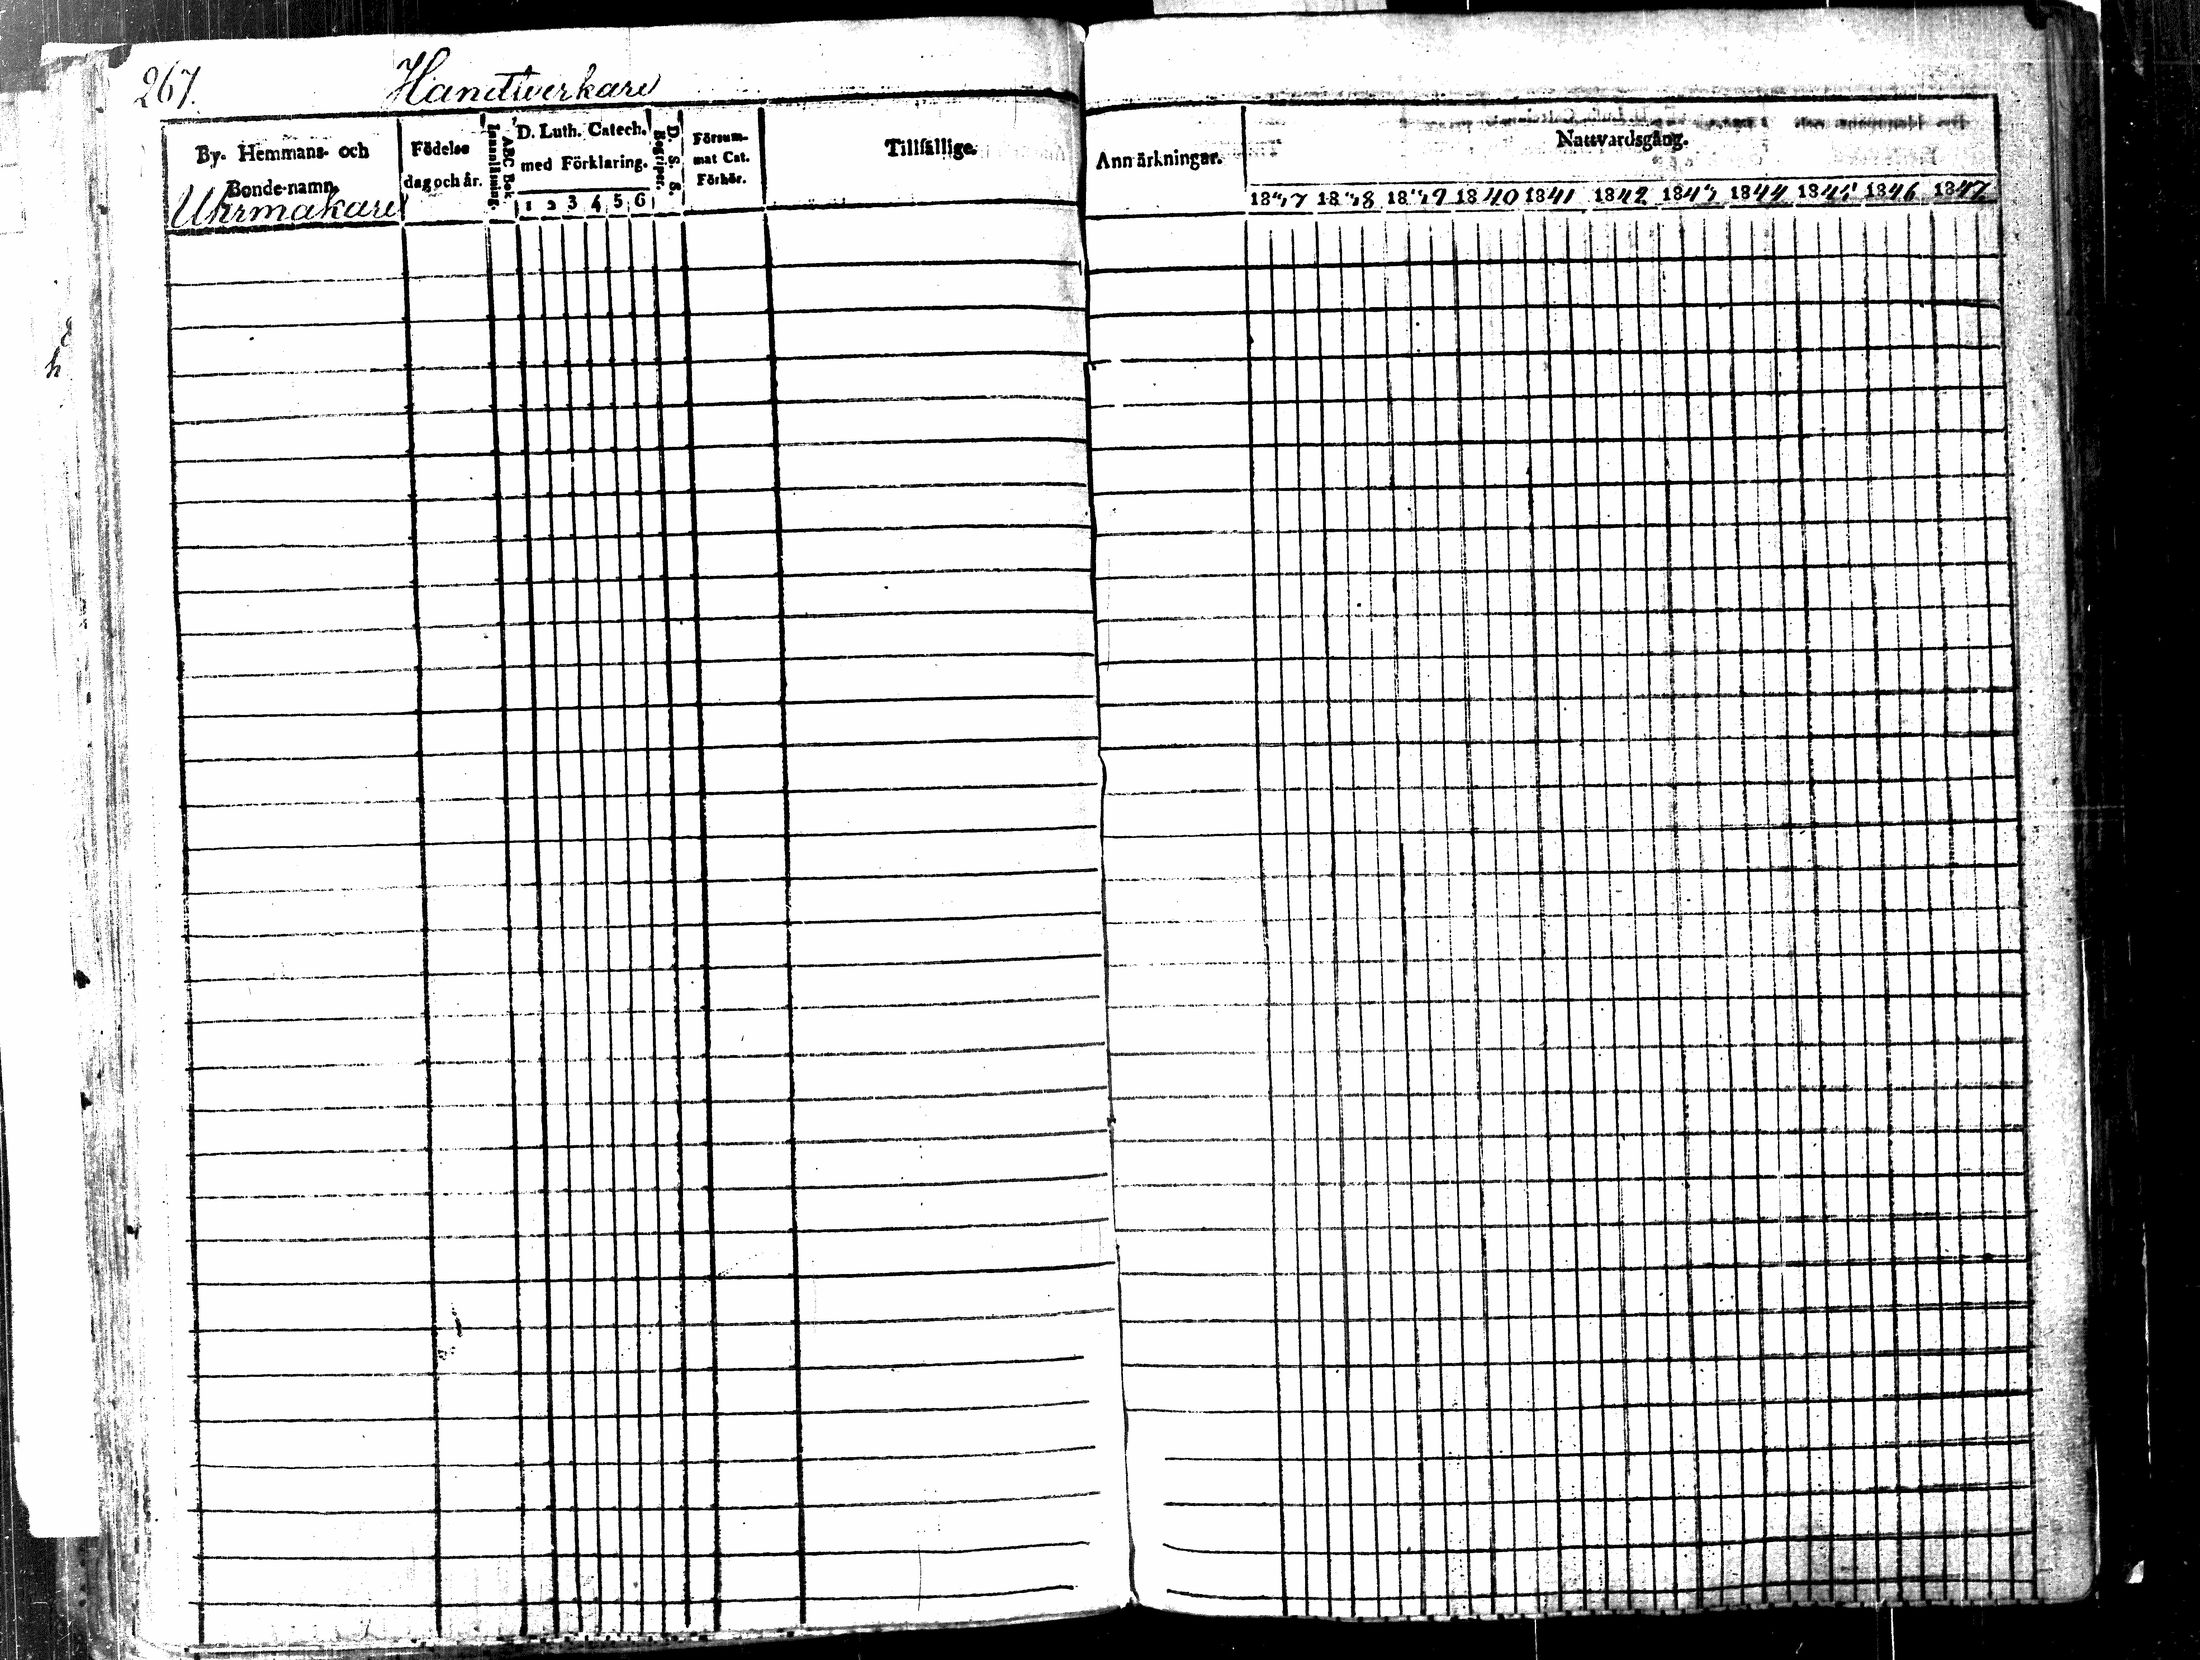 267.
Handtverkare
By- Hemmans- och
Bonde-namn.
Uhrmakare
Födelse
dag och år.
Innanläsning.
ABC Bok
D. Luth. Catech.
med Förklaring.
1 2 3 4 5 6
D. S. S.
Begriper.
Försum-
mat Cat.
Förhör.
Tillfällige.
Anmärkningar.
Nattvardsgång.
1837 1838 1839 1840 1841 1842 1843 1844 1845 1846 1847